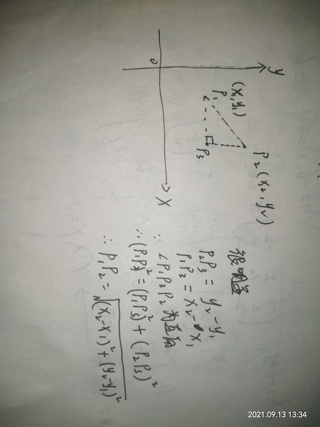 y
(x₁y₁)
P₁
P₂(x₂,y₂)
P₃
0
X
很明显
P₂P₃ = y₂-y₁
P₁P₃ = x₂-x₁
∵ ∠P₁P₃P₂为直角
∴ (P₁P₂)² = (P₁P₃)² + (P₂P₃)²
∴ P₁P₂ = √(x₂-x₁)²+(y₂-y₁)²
2021.09.13 13:34